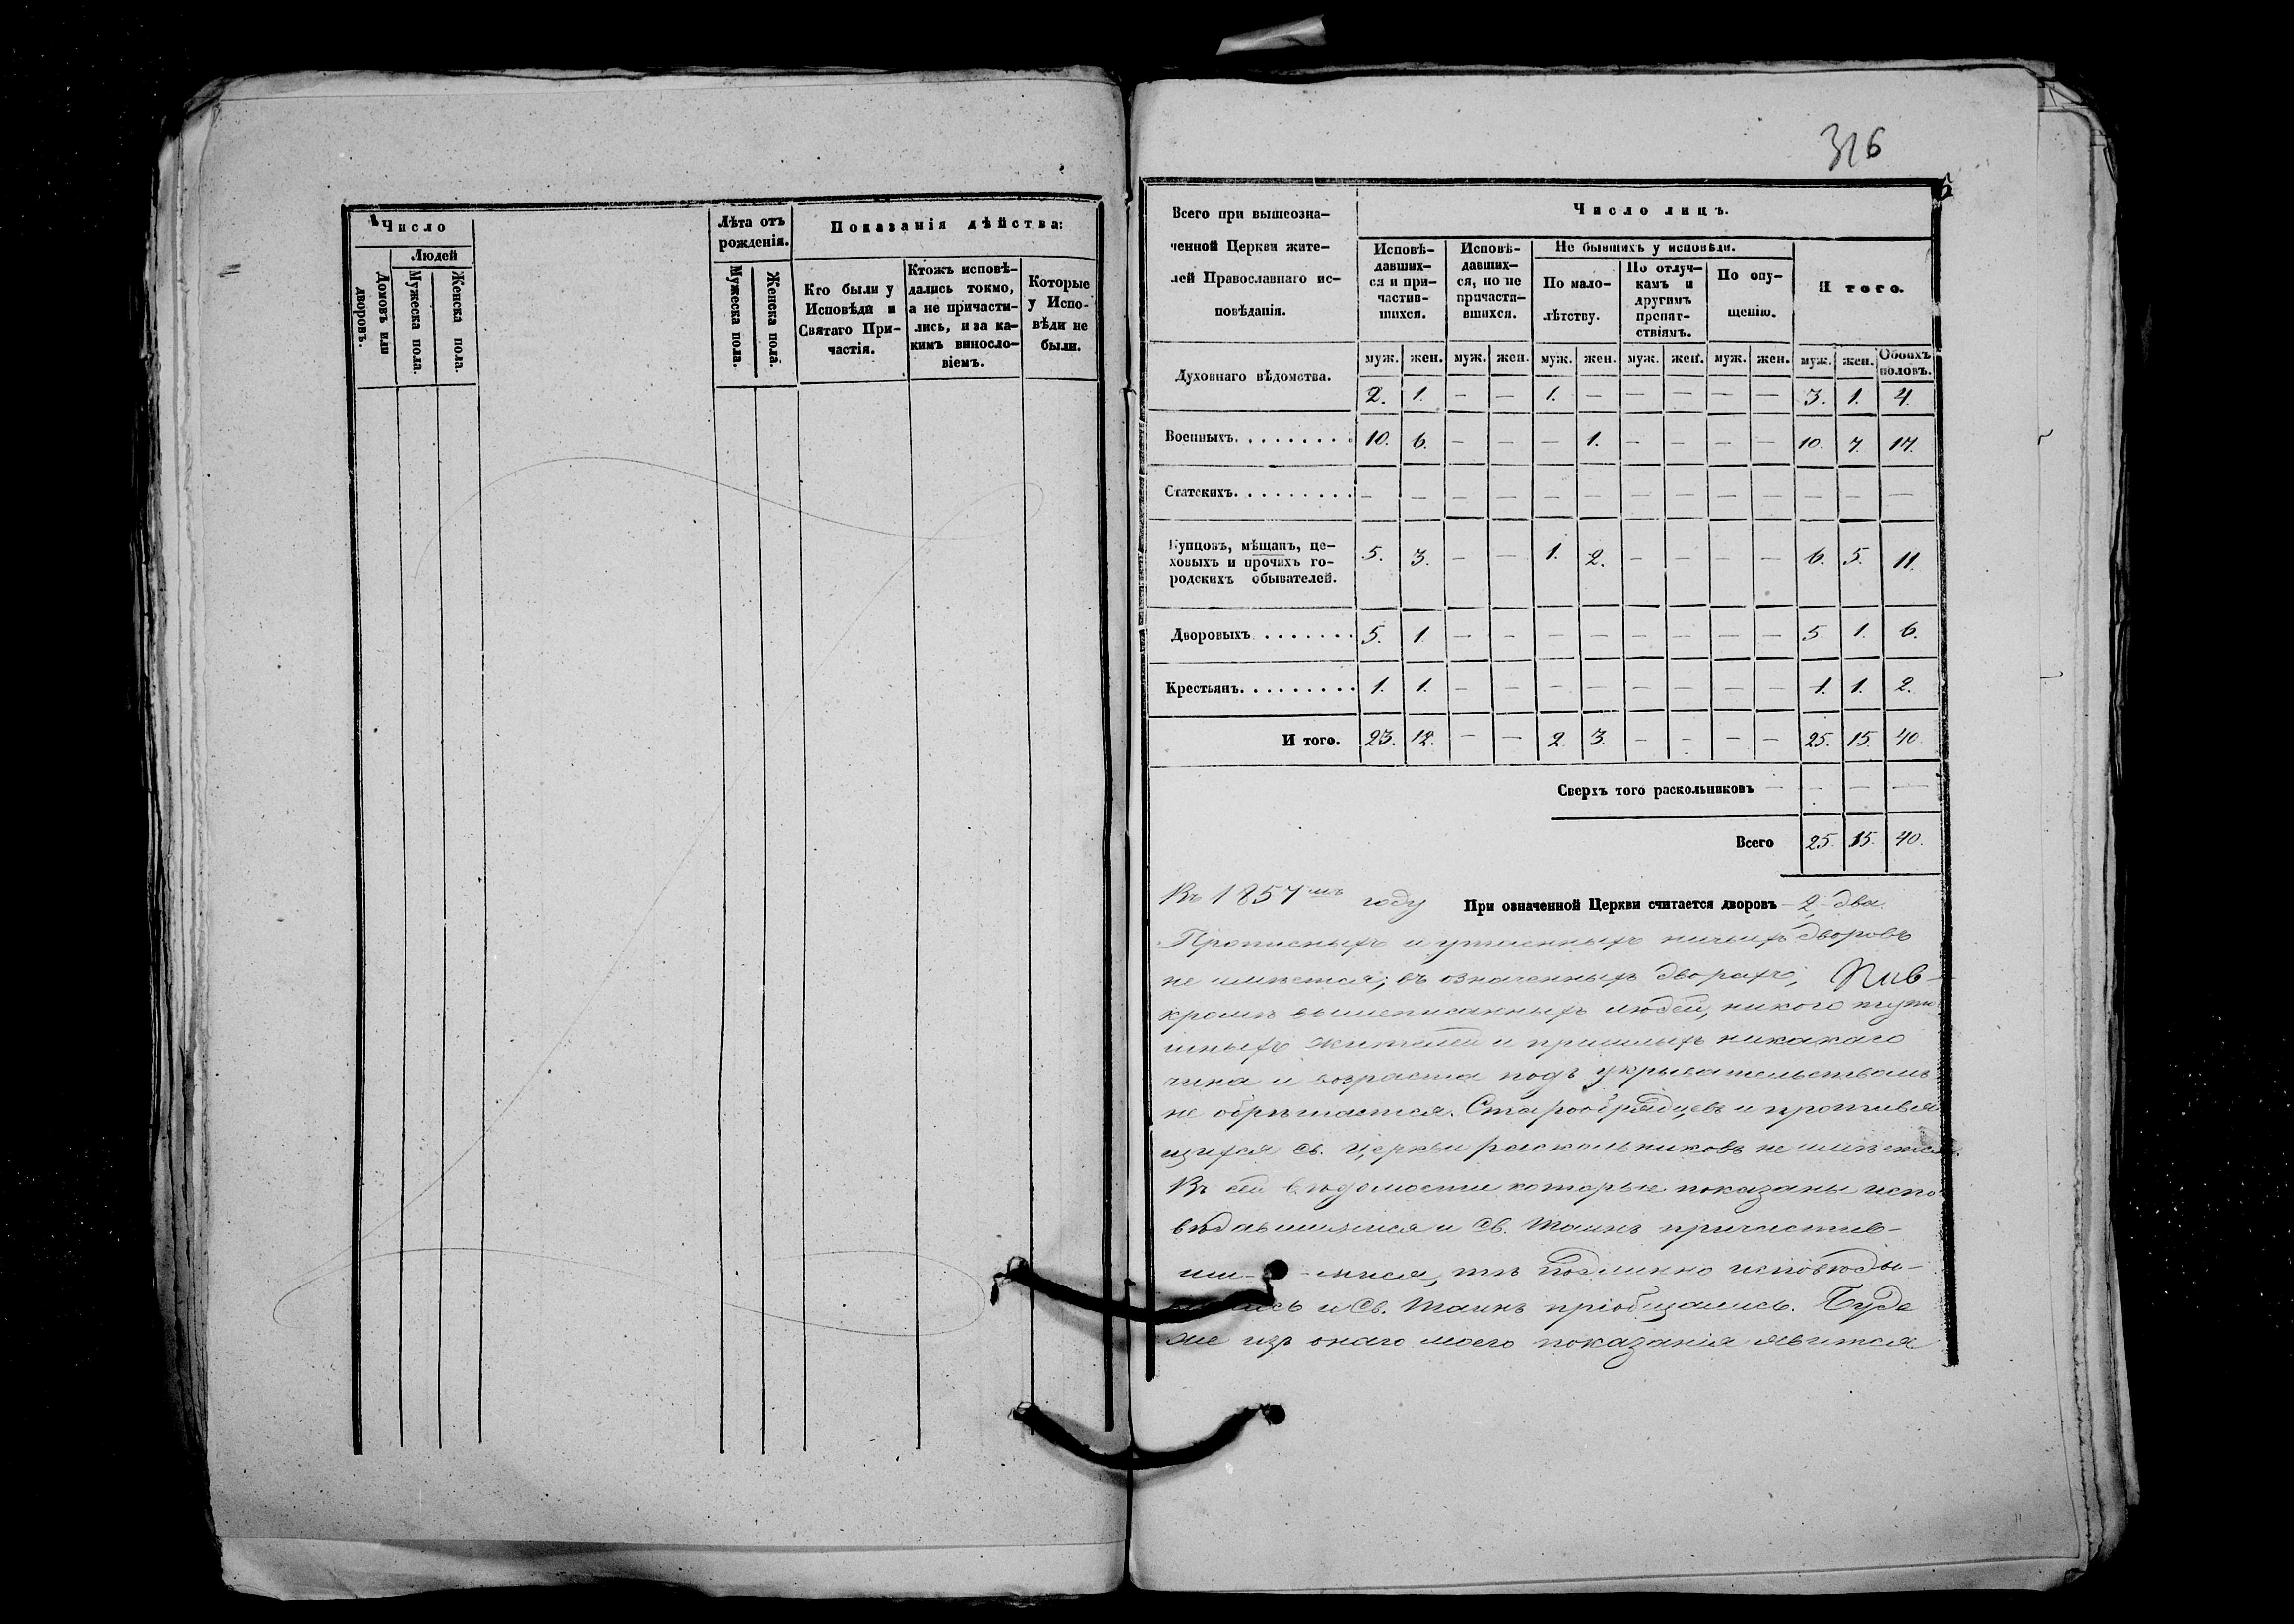 Число
Людей
Домовъ или дворовъ.
Мужеска пола.
Женска пола.
Лѣта отъ рожденія.
Мужеска пола.
Женска пола.
Показанія дѣйства:
Кто были у Исповѣди и Святаго Причастія.
Ктожъ исповѣдались токмо, а не причастились, и за какимъ винословіемъ.
Которые у Исповѣди не были.
316
Всего при вышеозна-
ченной Церкви жите-
лей Православнаго ис-
повѣданія.
Число лицъ.
Исповѣ-
давших-
ся и при-
частив-
шихся.
Исповѣ-
давших-
ся, но не
причасти-
вшихся.
Не бывшихъ у исповѣди.
По мало-
лѣтству.
По отлуч-
камъ и
другимъ
препят-
ствіямъ.
По опу-
щенію.
И того.
муж. жен. муж. жен. муж. жен. муж. жен. муж. жен. муж. жен. Обоихъ половъ.
Духовнаго вѣдомства. 2. 1. — — 1. — — — — — 3. 1. 4.
Военныхъ. . . . . . . . . 10. 6. — — — 1. — — — — 10. 7. 17.
Статскихъ. . . . . . . . . — — — — — — — — — — — — —
Купцовъ, мѣщанъ, це-
ховыхъ и прочихъ го-
родскихъ обывателей. 5. 3. — — 1. 2. — — — — 6. 5. 11.
Дворовыхъ . . . . . . . 5. 1. — — — — — — — — 5. 1. 6.
Крестьянъ. . . . . . . . . 1. 1. — — — — — — — — 1. 1. 2.
И того. 23. 12. — — 2. 3. — — — — 25. 15. 40.
Сверхъ того раскольниковъ — — — —
Всего 25. 15. 40.
Въ 1857мъ году При означенной Церкви считается дворовъ - 2, два.
Прописныхъ и утаенныхъ ничьихъ дворовъ
не имѣется; въ означенныхъ дворахъ,
кромѣ вышеписанныхъ людей, никого
жителей и пришлыхъ никакаго
чина и возраста подъ укрывательствомъ
не обрѣтается. Старообрядцевъ и противля
щихся св. Церкви раскольниковъ не имѣется.
Въ сей вѣдомости которые показаны испо
вѣдавшимися и Св. Таинъ причастив-
ши- -мися, тѣ подлинно исповѣды-
и Св. Таинъ пріобщались. Буде
же изъ онаго моего показанія явится